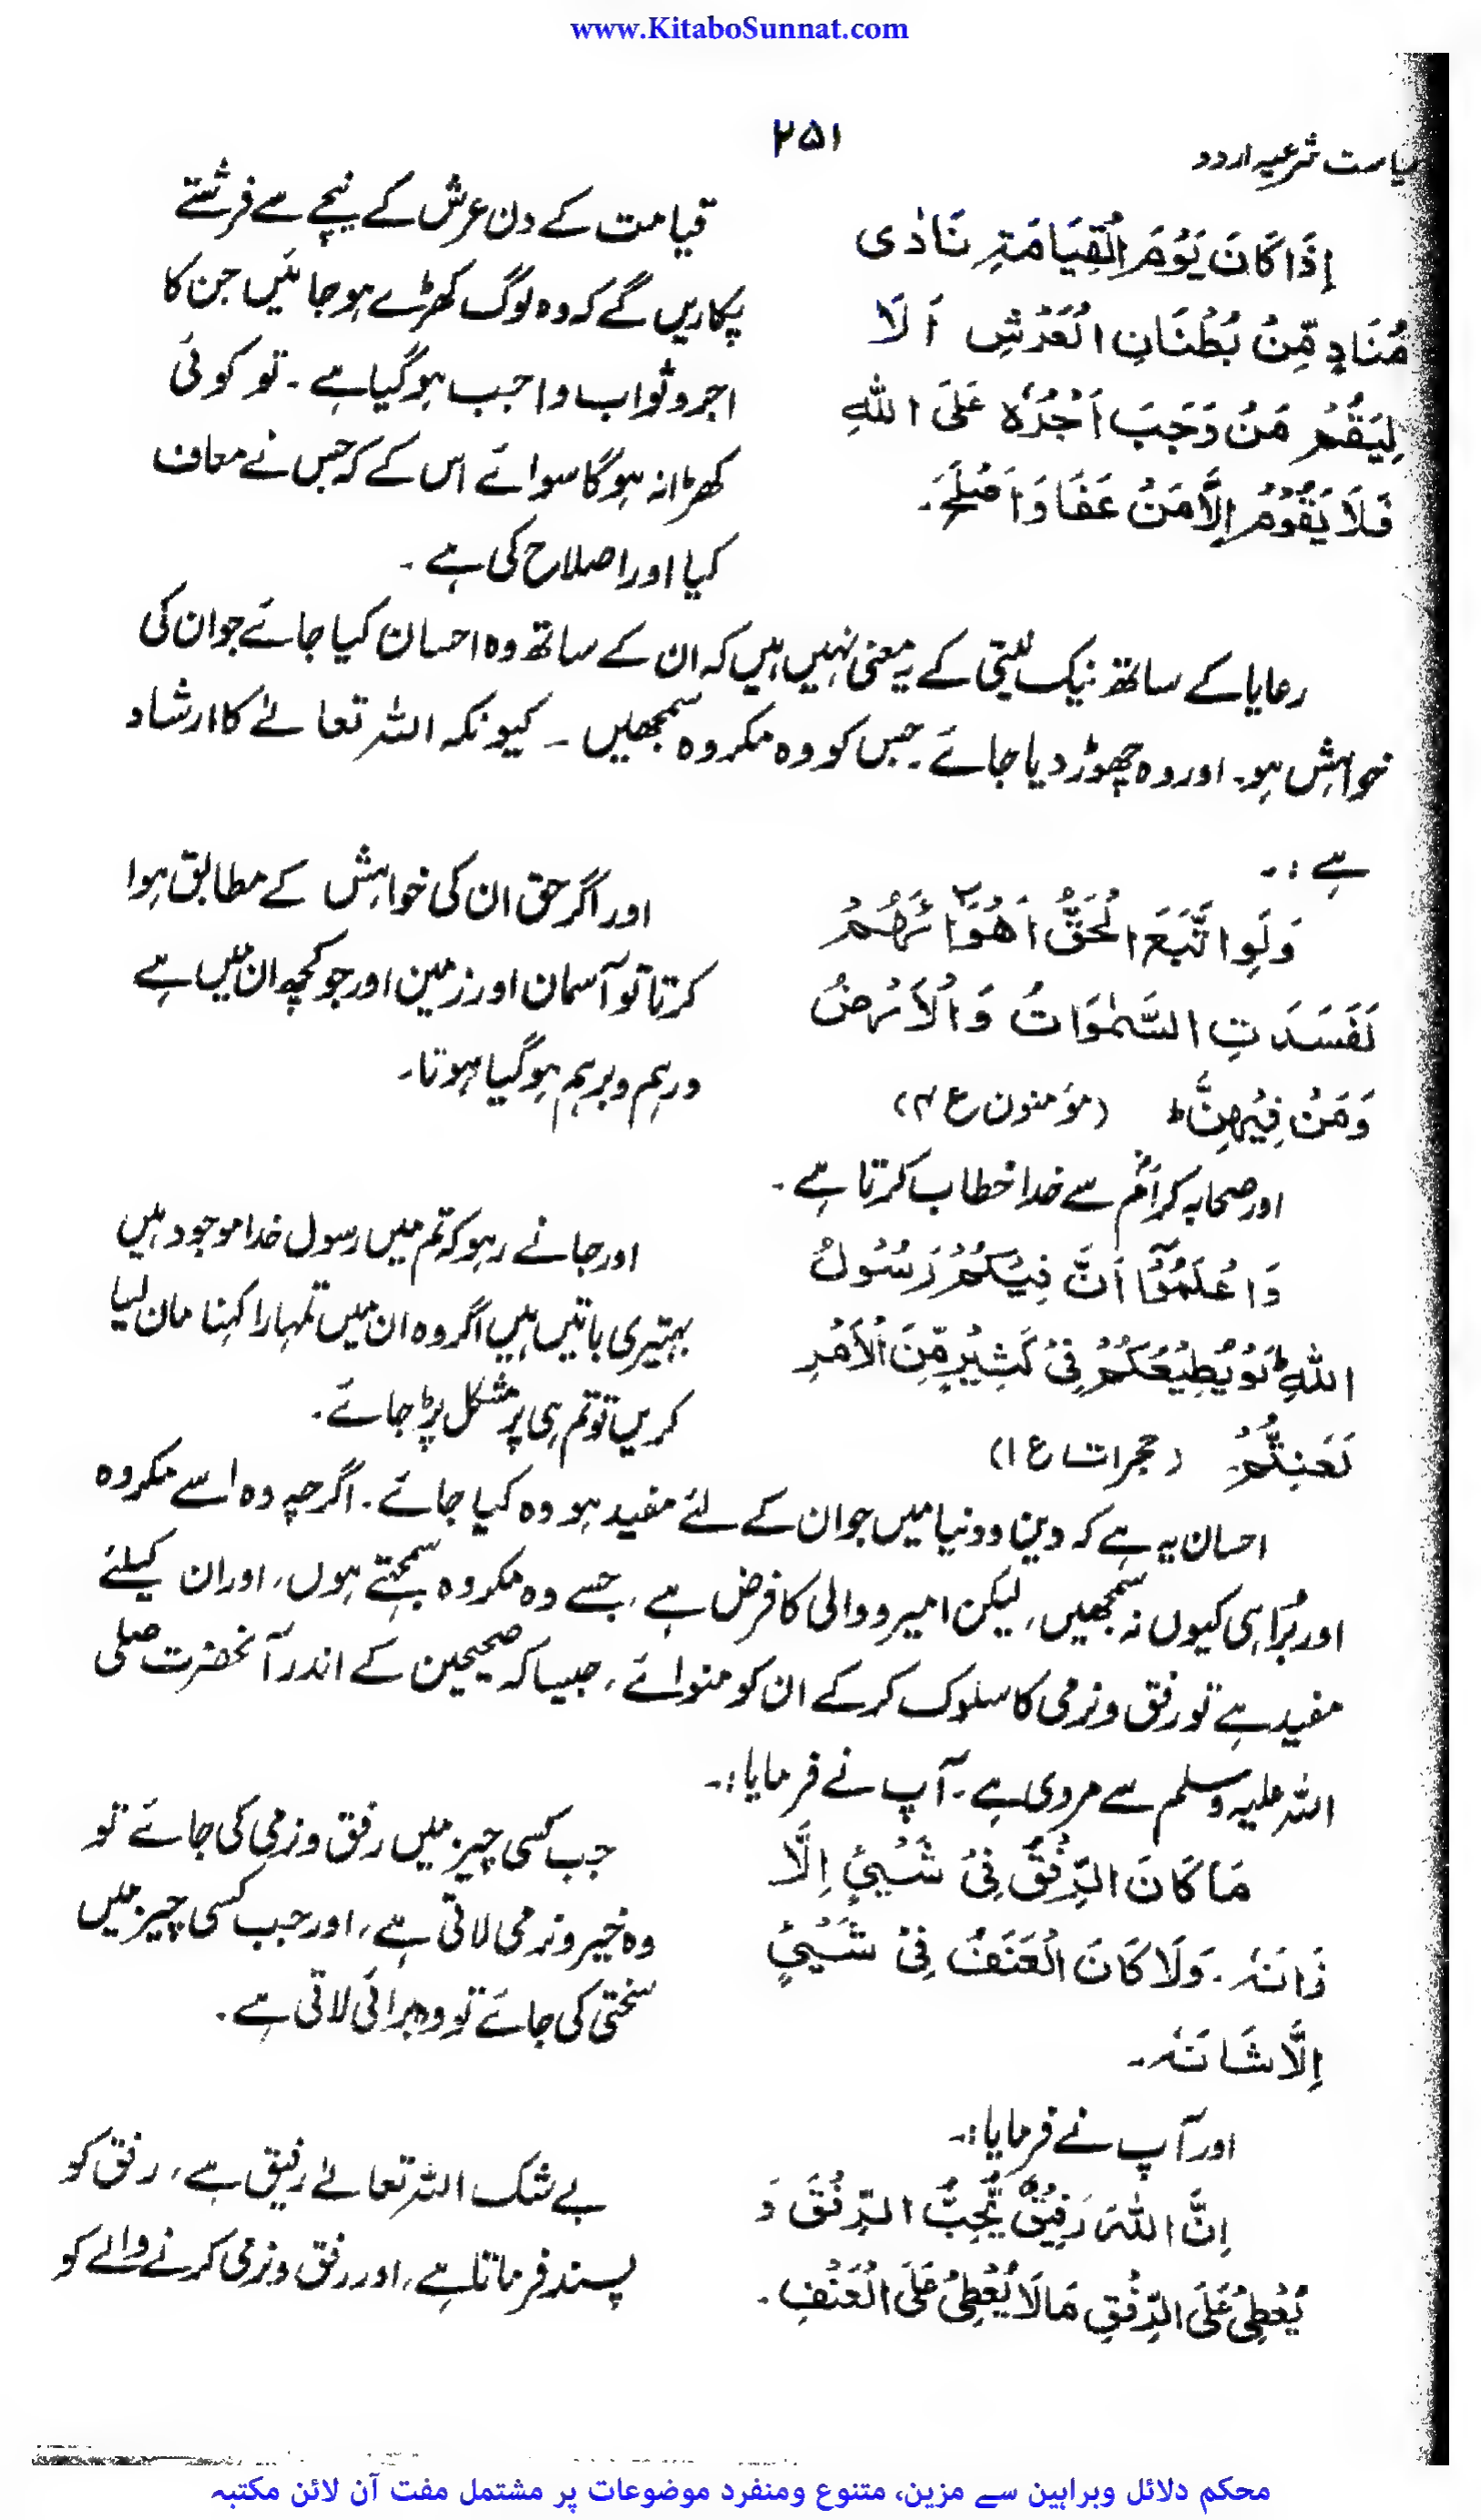 www.KitaboSunnat.com
۲۵۱
سیاست شرعیہ اردو
اِذَا كَانَ يَوْمَ الْقِيَامَةِ نَادٰى
مُنَادٍ مِّنْ بُطْنَانِ الْعَرْشِ اَلَا
لِيَقُمْ مَنْ وَجَبَ اَجْرُهٗ عَلَى اللهِ
فَلَا يَقُوْمُ اِلَّا مَنْ عَفَا وَاَصْلَحَ۔
قیامت کے دن عرش کے نیچے سے فرشتے
پکاریں گے کہ وہ لوگ کھڑے ہو جائیں جن کا
اجر و ثواب واجب ہو گیا ہے۔ تو کوئی
کھڑا نہ ہوگا سوائے اس کے کہ جس نے معاف
کیا اور اصلاح کی ہے۔
رعایا کے ساتھ نیک نیتی کے یہ معنی نہیں ہیں کہ ان کے ساتھ وہ احسان کیا جائے جو ان کی
خواہش ہو۔ اور وہ چھوڑ دیا جائے۔ جس کو وہ مکروہ سمجھیں۔ کیونکہ اللہ تعالےٰ کا ارشاد
ہے:۔
وَلَوِ اتَّبَعَ الْحَقُّ اَهْوَآئَهُمْ
لَفَسَدَتِ السَّمٰوَاتُ وَالْاَرْضُ
وَمَنْ فِيْهِنَّ ط (مؤمنون ع ۴)
اور اگر حق ان کی خواہش کے مطابق ہوا
کرتا تو آسمان اور زمین اور جو کچھ ان میں ہے
درہم و برہم ہو گیا ہوتا۔
اور صحابہ کرامؓ سے خدا خطاب کرتا ہے۔
وَاعْلَمُوْٓا اَنَّ فِيْكُمْ رَسُوْلَ
اللهِ ط لَوْ يُطِيْعُكُمْ فِىْ كَثِيْرٍ مِّنَ الْاَمْرِ
لَعَنِتُّمْ (حجرات ع ۱)
اور جانے رہو کہ تم میں رسول خدا موجود ہیں
بہتیری باتیں ہیں اگر وہ ان میں تمہارا کہنا مان لیا
کریں تو تم ہی پر مشکل پڑ جائے۔
احسان یہ ہے کہ دین و دنیا میں جو ان کے لئے مفید ہو وہ کیا جائے۔ اگرچہ وہ اسے مکروہ
اور بُرا ہی کیوں نہ سمجھیں، لیکن امیر و والی کا فرض ہے، جسے وہ مکروہ سمجھتے ہوں، اور ان کیلئے
مفید ہے تو رفق و نرمی کا سلوک کر کے ان کو منوائے، جیسا کہ صحیحین کے اندر آنحضرت صلی
اللہ علیہ وسلم سے مروی ہے۔ آپ نے فرمایا:۔
مَا كَانَ الرِّفْقُ فِىْ شَيْئٍ اِلَّا
زَانَهٗ۔ وَلَا كَانَ الْعَنَفُ فِىْ شَيْئٍ
اِلَّا شَانَهٗ۔
جب کسی چیز میں رفق و نرمی کی جائے تو
وہ خیر و نرمی لاتی ہے، اور جب کسی چیز میں
سختی کی جائے تو وہ برائی لاتی ہے۔
اور آپ نے فرمایا:۔
اِنَّ اللهَ رَفِيْقٌ يُّحِبُّ الرِّفْقَ وَ
يُعْطِىْ عَلَى الرِّفْقِ مَا لَا يُعْطِىْ عَلَى الْعَنَفِ۔
بے شک اللہ تعالےٰ رفیق ہے، رفق کو
پسند فرماتا ہے، اور رفق و نرمی کرنے والے کو
محکم دلائل وبراہین سے مزین، متنوع ومنفرد موضوعات پر مشتمل مفت آن لائن مکتبہ